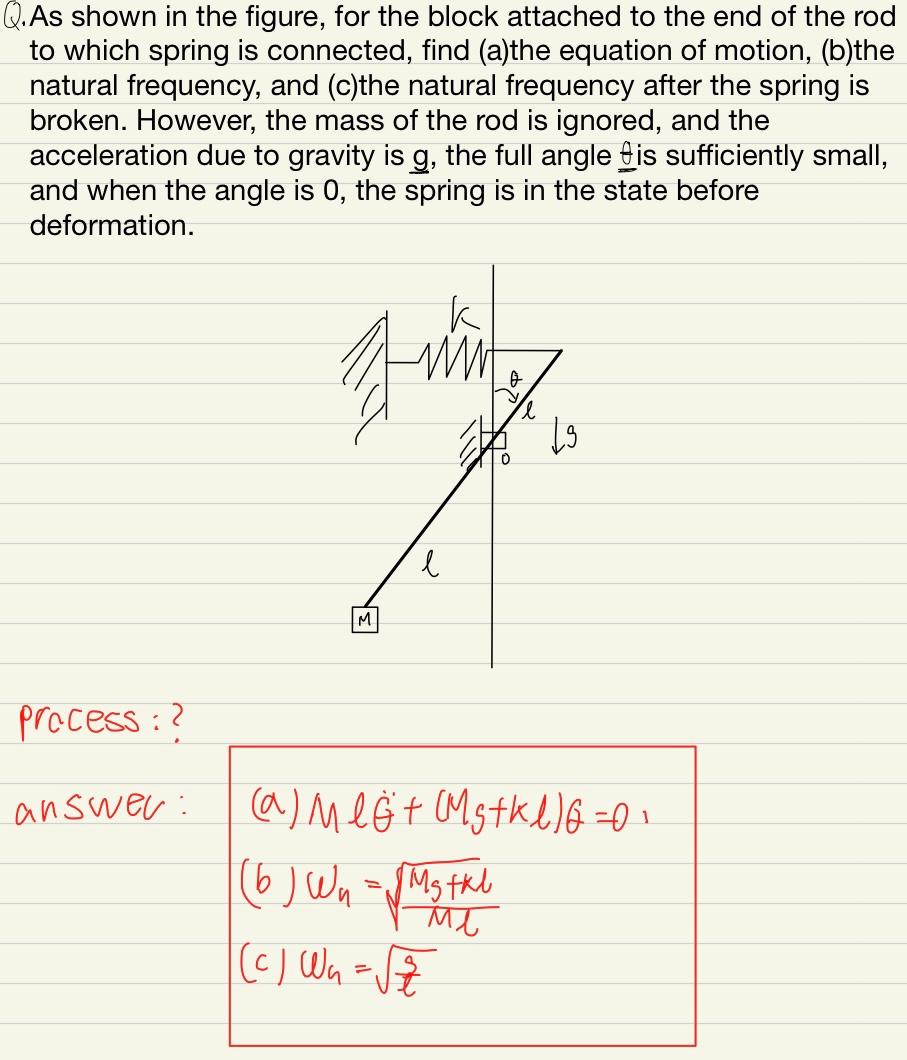 Q. As shown in the figure, for the block attached to the end of the rod
to which spring is connected, find (a)the equation of motion, (b)the
natural frequency, and (c)the natural frequency after the spring is
broken. However, the mass of the rod is ignored, and the
acceleration due to gravity is g, the full angle θ is sufficiently small,
and when the angle is 0, the spring is in the state before
deformation.
k
θ
l
↓g
o
l
M
process : ?
answer :
(a) Mlθ̈ + (Mg+kl)θ = 0 ,
(b) ωn = √((Mg+kl)/(Ml))
(c) ωn = √(g/l)